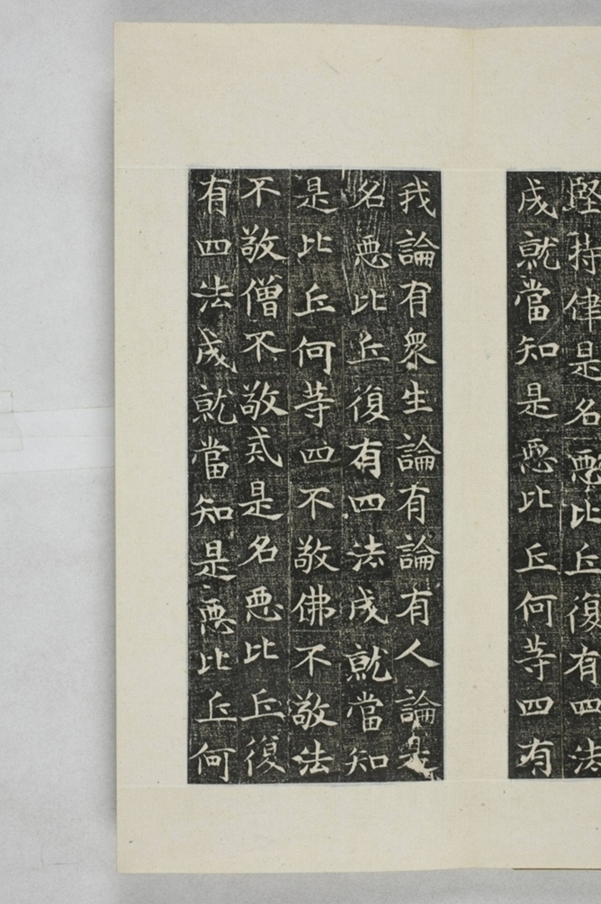 堅持律是名惡比丘復有四法
成就當知是惡比丘何等四有
我論有衆生論有論有人論是
名惡比丘復有四法成就當知
是比丘何等四不敬佛不敬法
不敬僧不敬戒是名惡比丘復
有四法成就當知是惡比丘何